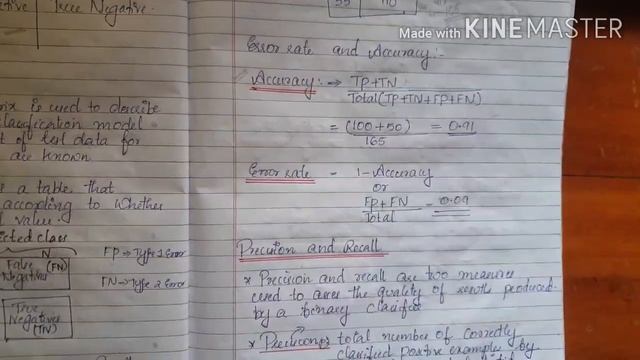 True Negative.
Made with KINEMASTER
is used to describe
classification model
of test data for
are known
a table that
according to whether
value.
class
N
False
Negatives (FN)
True
Negatives
(TN)
FP⇒Type 1 Error
FN→Type 2 Error
Error rate and Accuracy:-
Accuracy:→ TP+TN
Total(TP+TN+FP+FN)
= (100+50) = 0.91
165
Error rate - 1-Accuracy
or
FP+FN = 0.09
Total
Precision and Recall
* Precision and recall are two measures
used to asses the quality of results produced
by a binary
* total number of correctly
classified positive examples by